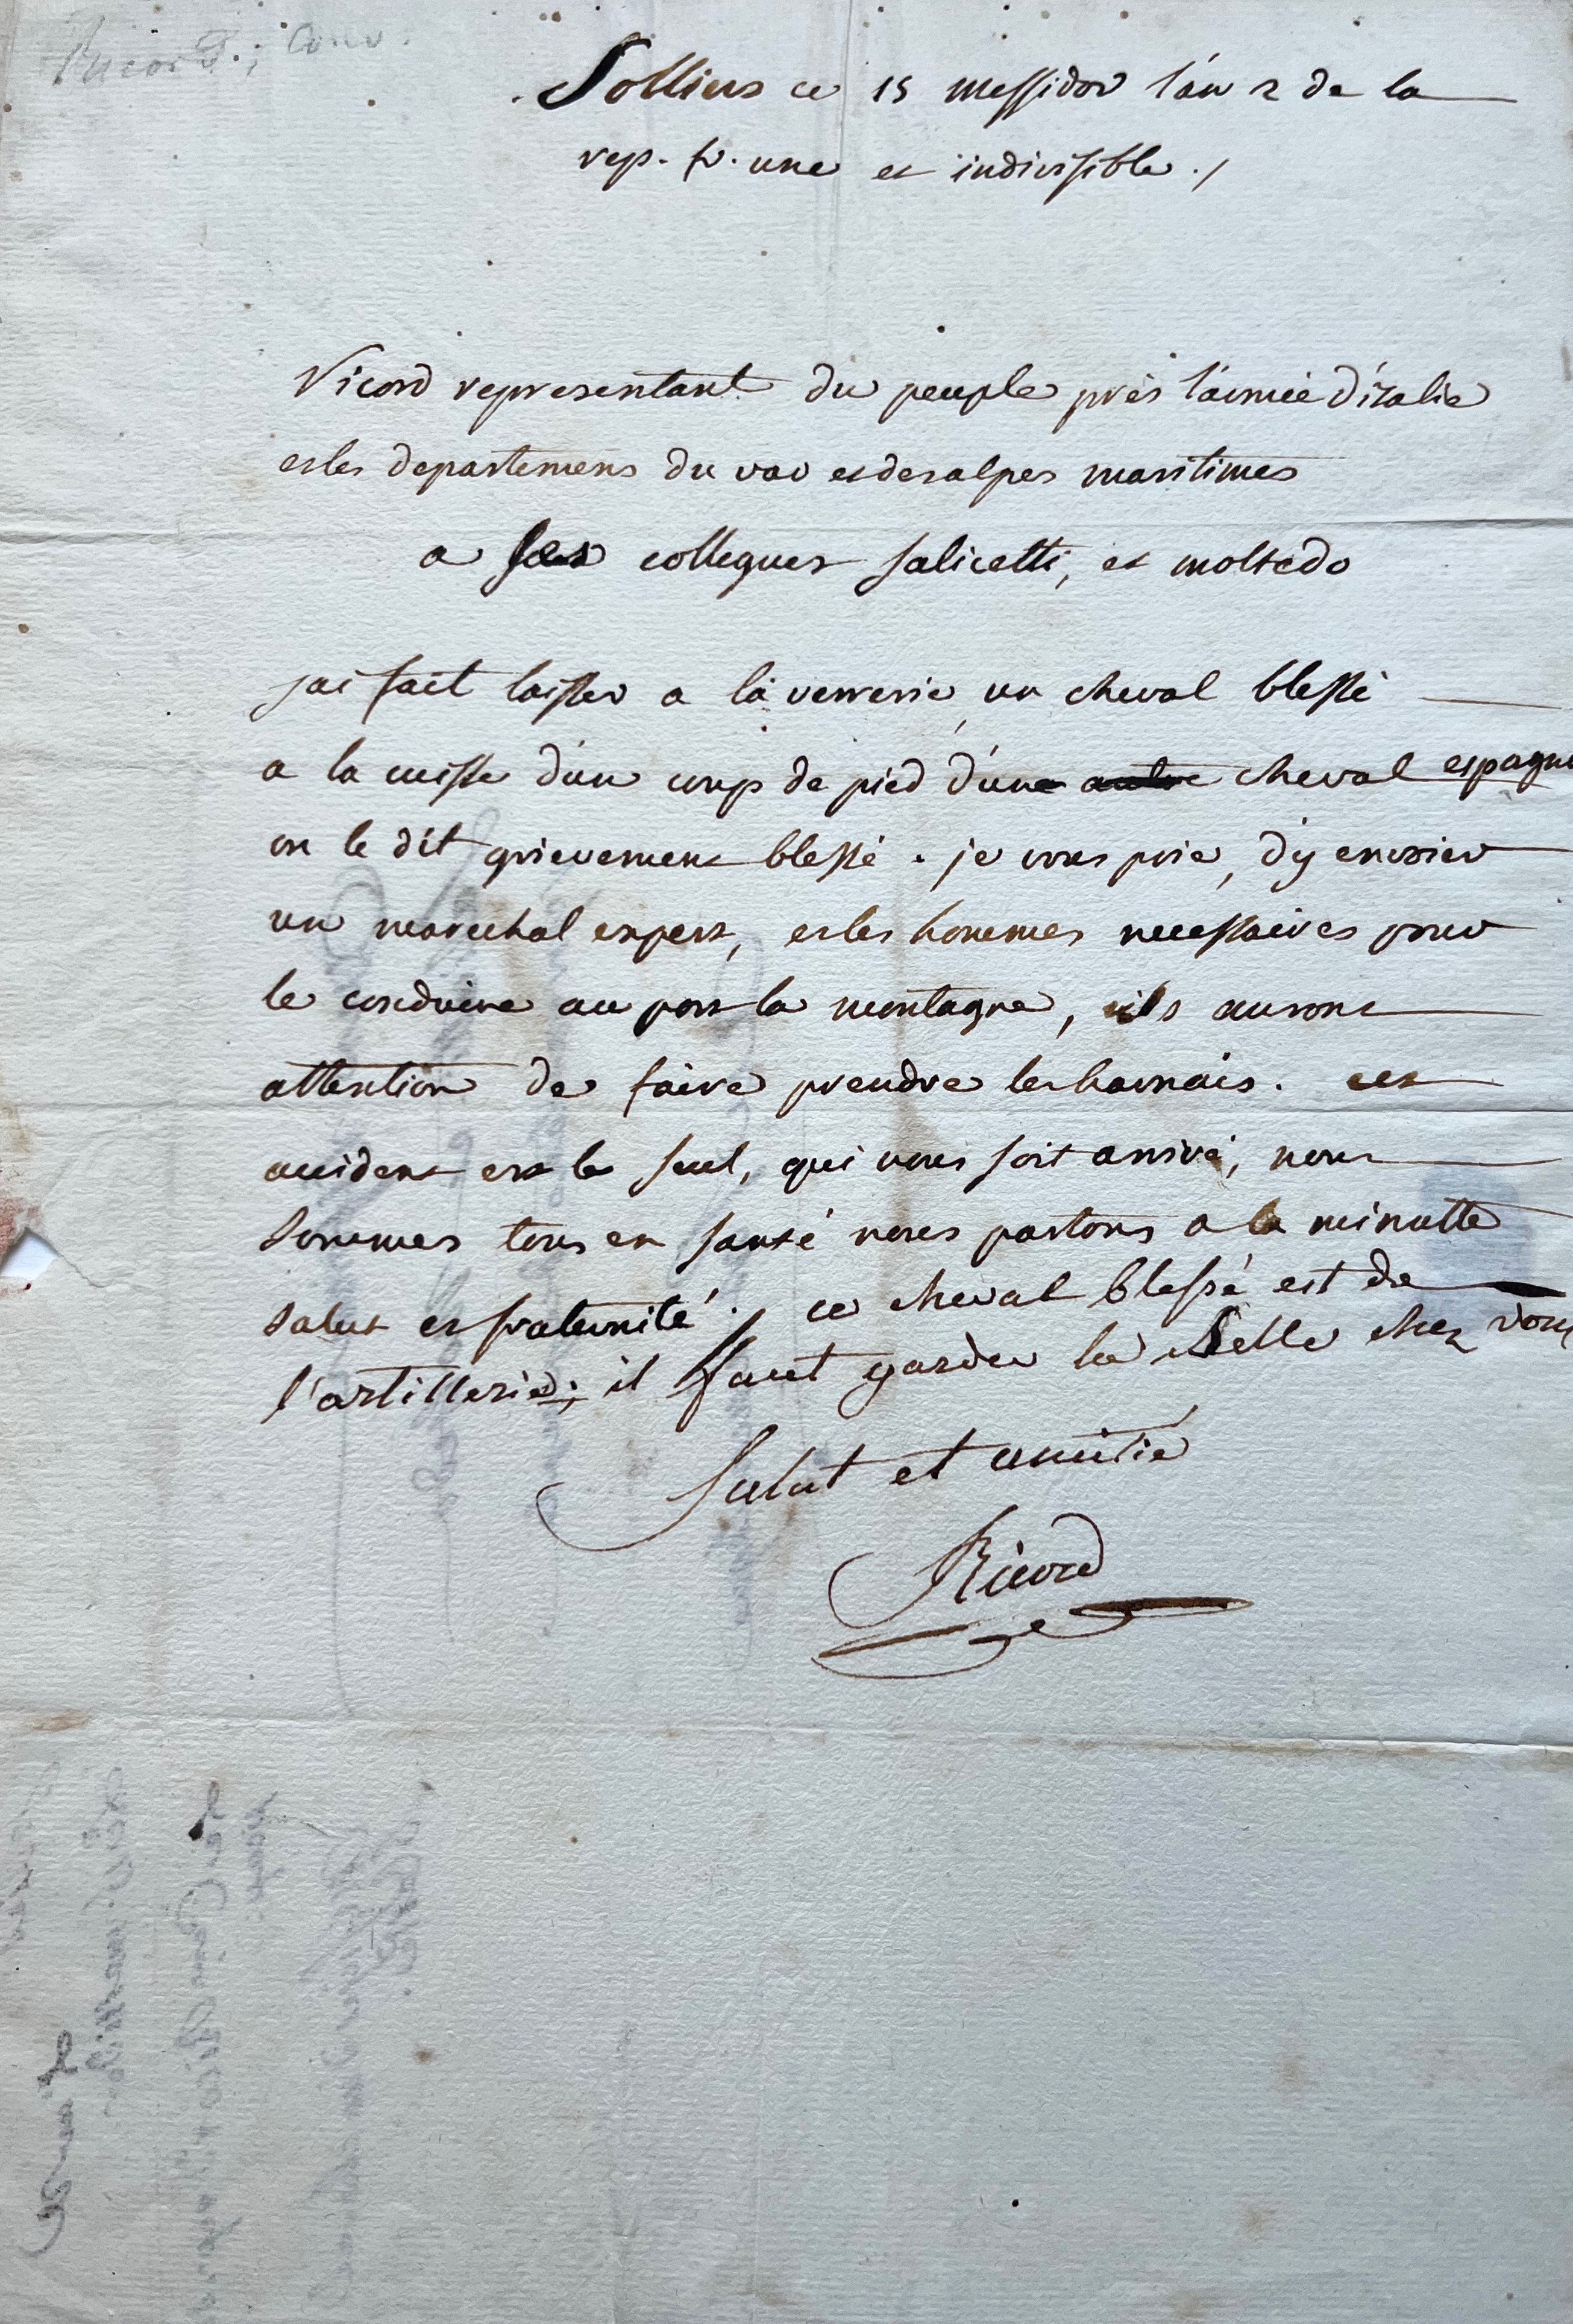 Ricord, Conv.
Sollies ce 15 messidor l'an 2 de la
rep. fr. une et indivisible ./
Ricord representant du peuple près l'armée d'italie
et les departemens du var et des alpes maritimes
a ses collegues salicetti, et moltedo
j'ai fait laisser a la verrerie un cheval blessé
a la cuisse d'un coup de pied d'une autre cheval espagn
on le dit grievement blessé . je vous prie, d'y envoier
un marechal expert, et les hommes necessaires pour
le conduire au port la montagne, ils auront
attention de faire prendre les harnais. cet
accident est le seul, qui nous soit arrivé, nous
sommes tous en santé nous partons a la minutte
salut et fraternité . / ce cheval blessé est de
l'artillerie; il faut garder la selle chez vous
Salut et amitié
Ricord